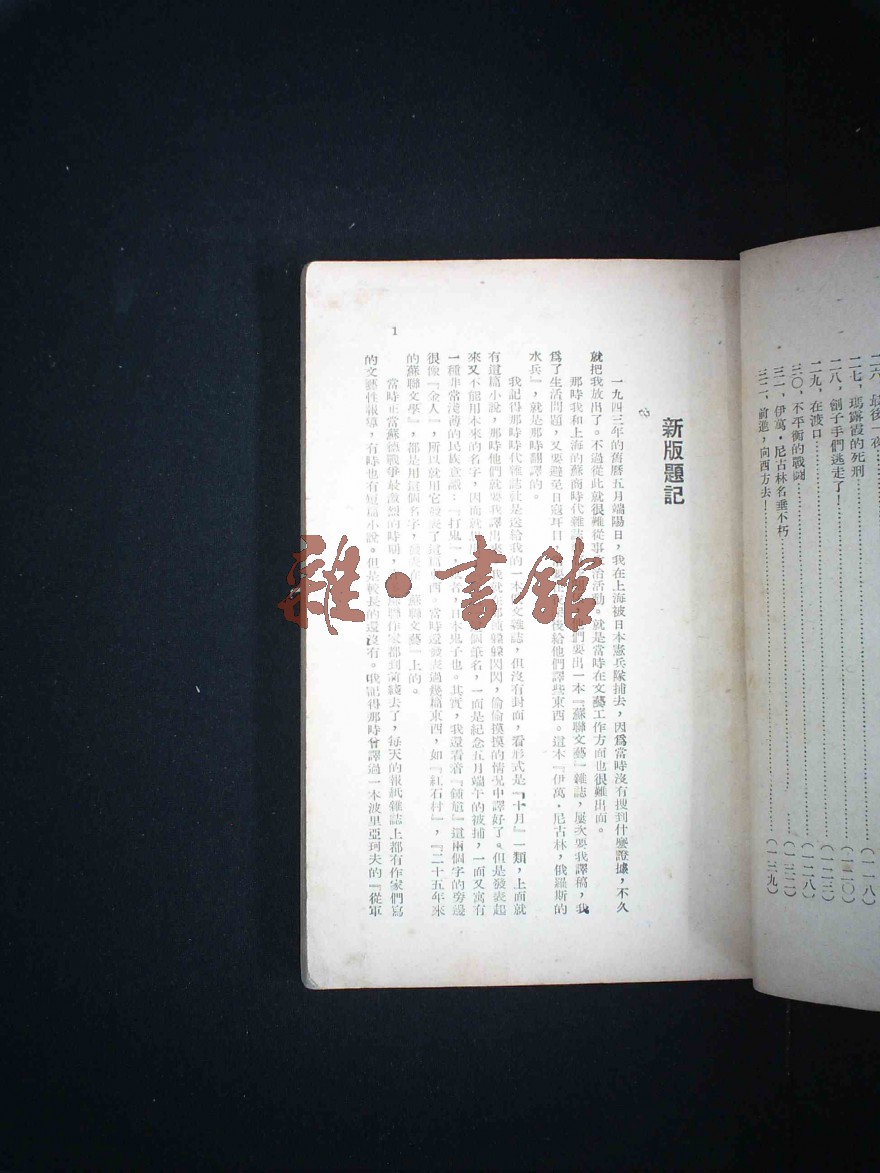 二六、最後一夜
二七、瑪露霞的死刑………(一一八)
二八、劊子手們逃走了！………(一二〇)
二九、在渡口………(一二三)
三〇、不平衡的戰鬪………(一二八)
三一、伊萬・尼古林名垂不朽………(一三二)
三二、前進，向西方去！………(一三九)
新版題記
一九四三年的舊曆五月端陽日，我在上海被日本憲兵隊捕去，因爲當時沒有搜到什麼證據，不久
就把我放出了。不過從此就很難從事 治活動。就是當時在文藝工作方面也很難出面。
那時我和上海的蘇商時代雜誌 們要出一本『蘇聯文藝』雜誌，屢次要我譯稿，我
爲了生活問題，又要避免日寇 日 我給他們譯些東西。這本『伊萬・尼古林，俄羅斯的
水兵』，就是那時翻譯的。
我記得那時時代雜誌社是送給我的一本 文雜誌，但沒有封面，看形式是『十月』一類，上面就
有這篇小說，那時他們就要我譯出 我就 躲躲閃閃，偷偷摸摸的情況中譯好了。但是發表起
來又不能用本來的名字，因而就 個筆名，一面是紀念五月端午的被捕，一面又寓有
一種非常淺薄的民族意識：『打鬼』 者，日本鬼子也。其實，我還看着『鍾馗』這兩個字的旁邊
很像『金人』，所以就用它發表了這篇 當時還發表過幾篇東西，如『紅石村』，『二十五年來
的蘇聯文學』，都是用這個名字，發表 蘇聯文藝』上的。
當時正當蘇德戰爭最激烈的時期， 聯作家都到前綫去了，每天的報紙雜誌上都有作家們寫
的文藝性報導，有時也有短篇小說。但是較長的還沒有。我記得那時曾譯過一本波里亞珂夫的『從軍
1
雜・書館